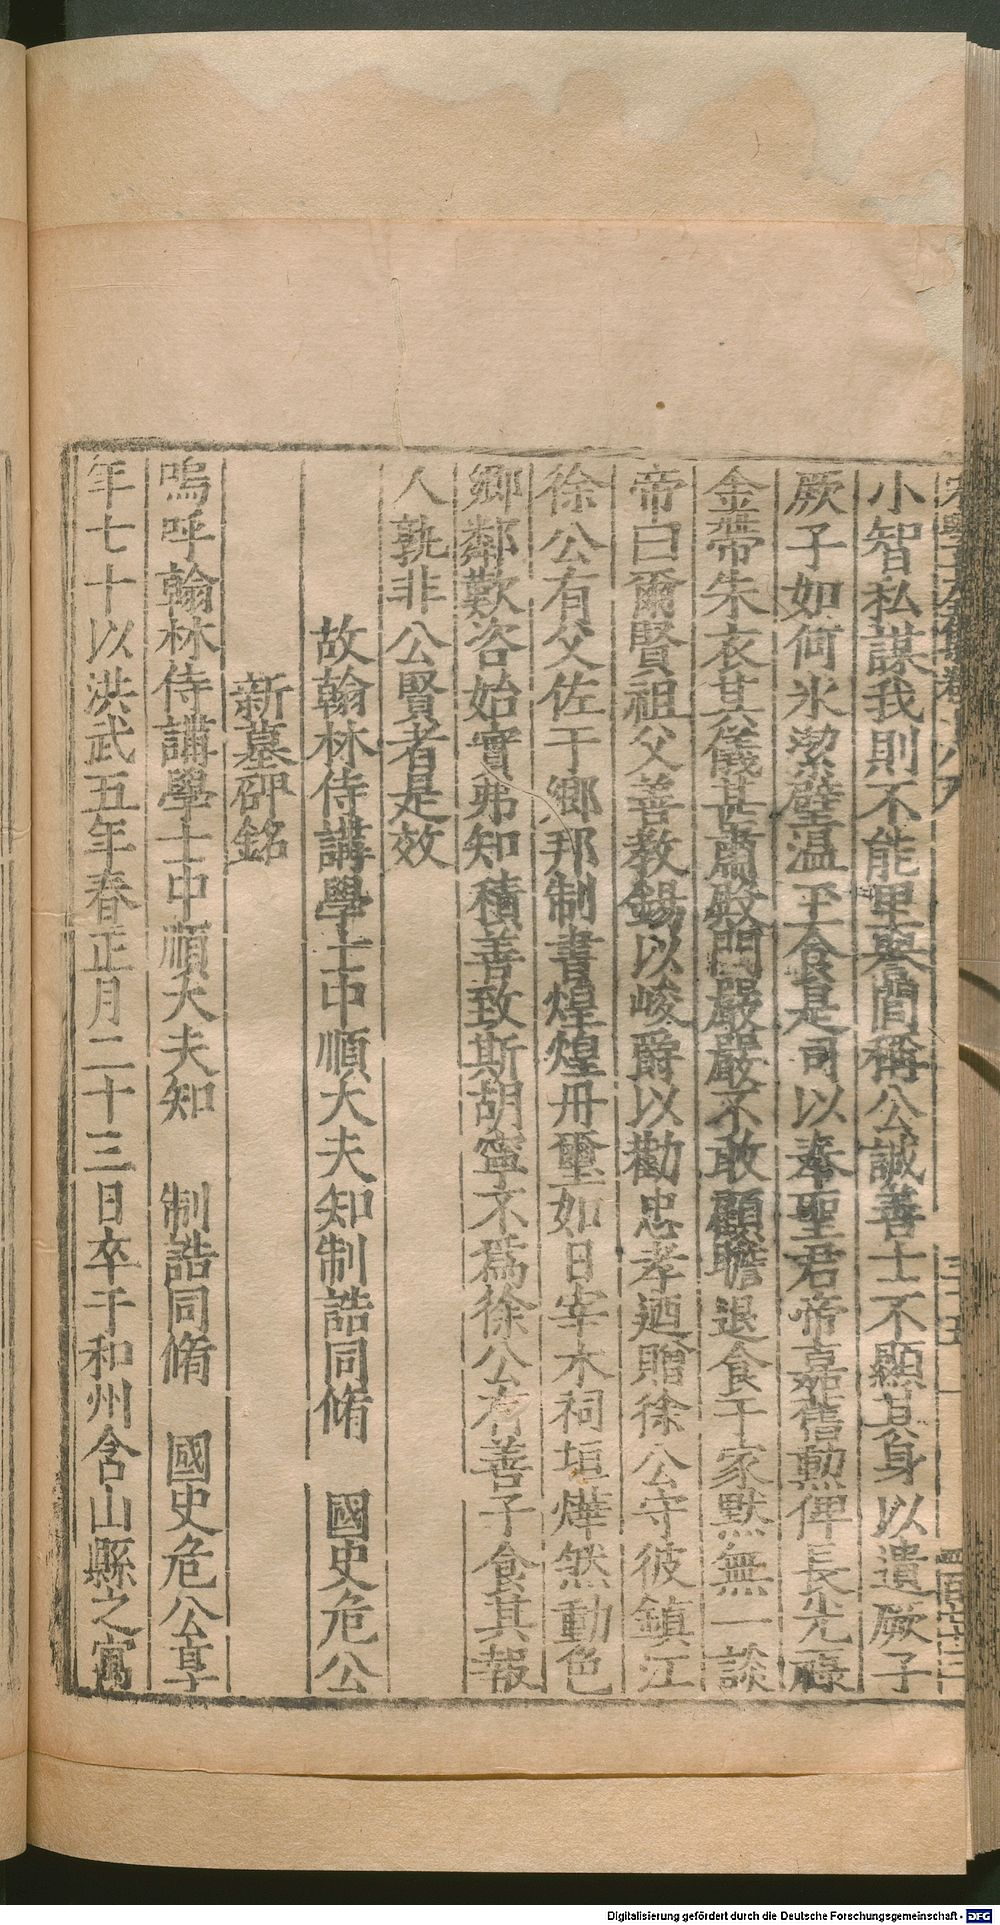 小智私謀我則不能里譽閭稱公誠善士不顯其身以遺厥子
厥子如何氷潔璧温玉食是司以奉聖君帝嘉舊勲俾長光祿
金帶朱衣其儀甚肅殿閣嚴嚴不敢顧瞻退食于家默無一談
帝曰爾賢祖父善教錫以峻爵以勸忠孝迺贈徐公守彼鎮江
徐公有父佐于鄉邦制書煌煌冊璽如日宰木祠垣燁然動色
鄉鄰歎咨始實弗知積善致斯胡寧不爲徐公有善子食其報
人孰非公賢者是效
故翰林侍講學士中順大夫知制誥同脩 國史危公
新墓碑銘
嗚呼翰林侍講學士中順大夫知 制誥同脩 國史危公享
年七十以洪武五年春正月二十三日卒于和州含山縣之寓
Digitalisierung gefördert durch die Deutsche Forschungsgemeinschaft - DFG